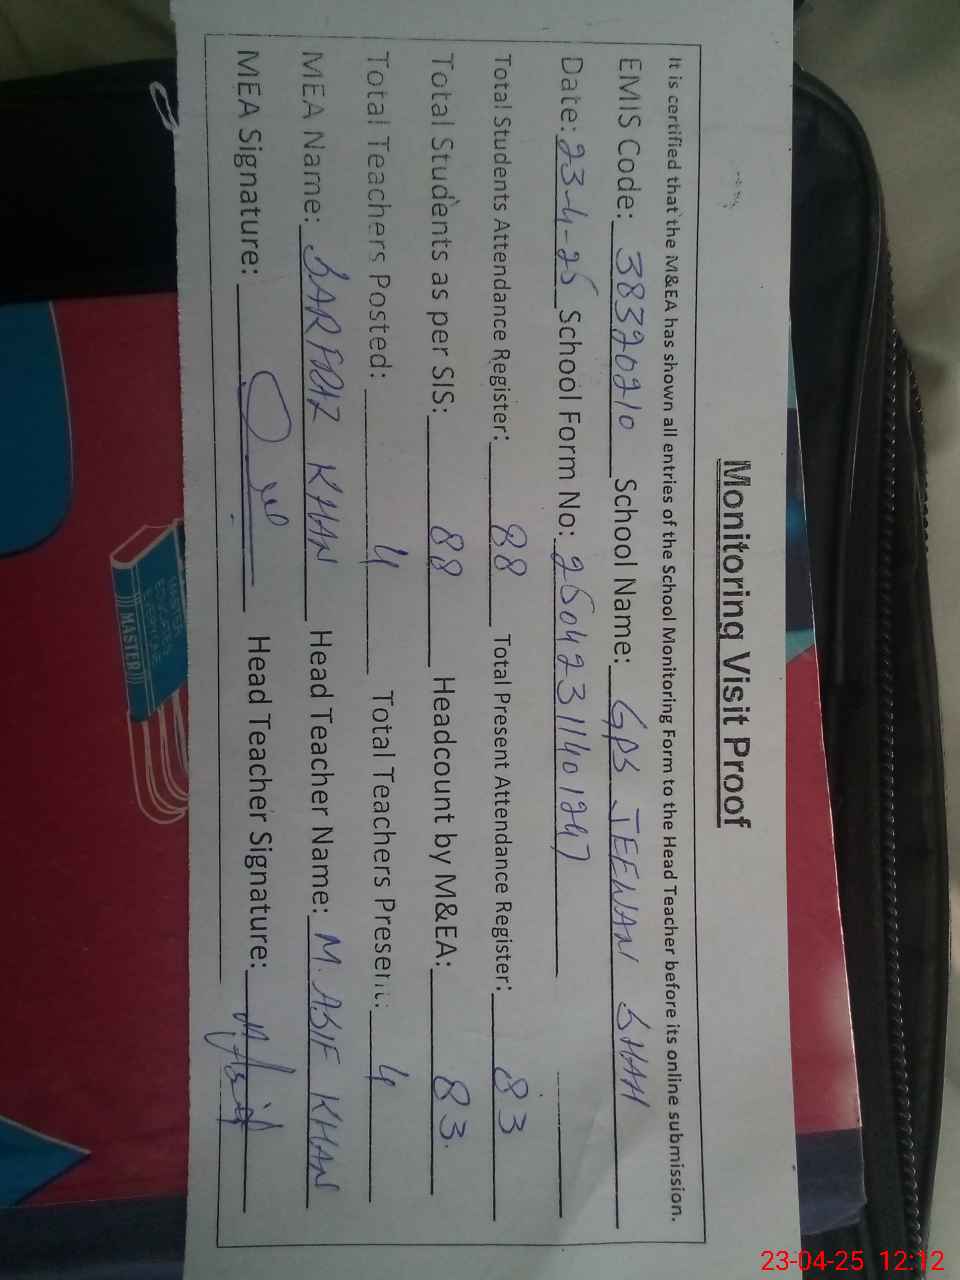 Monitoring Visit Proof
It is certified that the M&EA has shown all entries of the School Monitoring Form to the Head Teacher before its online submission.
EMIS Code: 38320210 School Name: GPS JEEWAN SHAH
Date: 23-4-25 School Form No: 25042311401247
Total Students Attendance Register: 88 Total Present Attendance Register: 83
Total Students as per SIS: 88 Headcount by M&EA: 83
Total Teachers Posted: 4 Total Teachers Present: 4
MEA Name: SARFRAZ KHAN Head Teacher Name: M. ASIF KHAN
MEA Signature: Head Teacher Signature: M Asif
MASTER
23-04-25 12:12